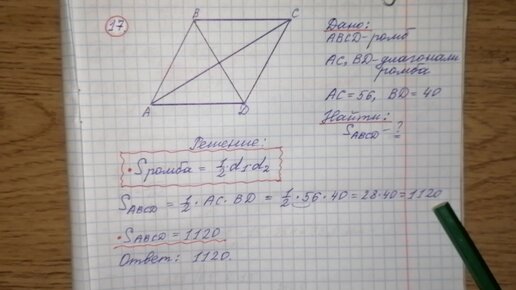 17
B
C
A
D
Дано:
ABCD-ромб
AC, BD-диагонали
ромба
AC = 56, BD = 40
Найти:
S_ABCD - ?
Решение:
• S ромба = 1/2 d₁·d₂
S_ABCD = 1/2 · AC · BD = 1/2 · 56 · 40 = 28·40 = 1120
• S_ABCD = 1120
Ответ: 1120.